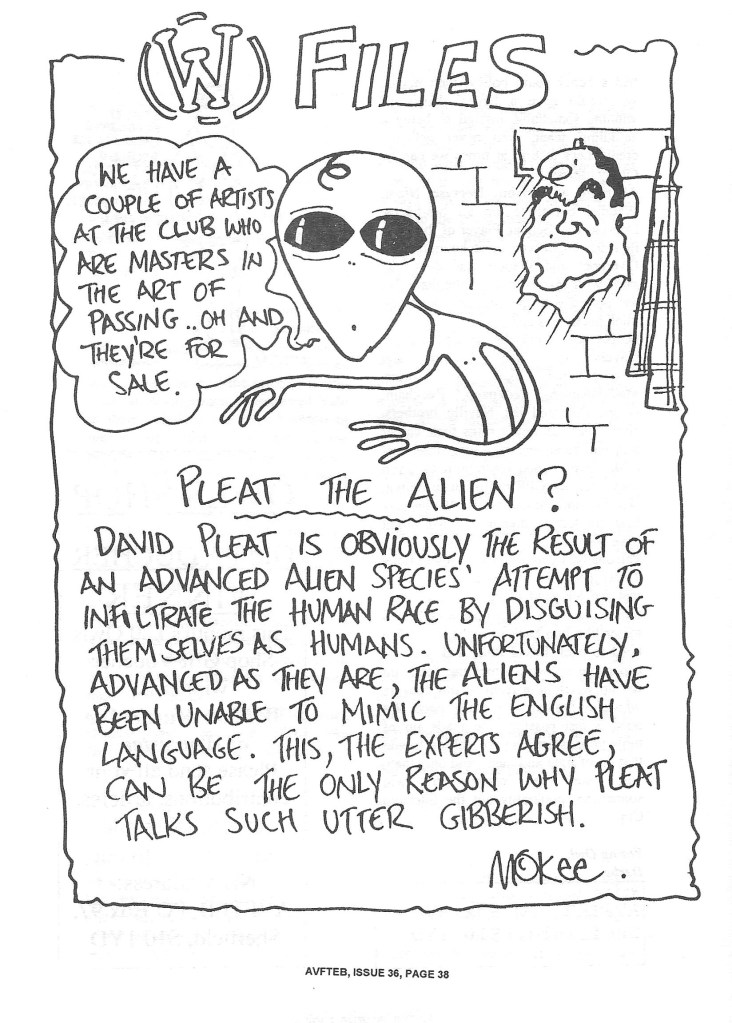 W FILES
WE HAVE A
COUPLE OF ARTISTS
AT THE CLUB WHO
ARE MASTERS IN
THE ART OF
PASSING..OH AND
THEY'RE FOR
SALE.
PLEAT THE ALIEN?
DAVID PLEAT IS OBVIOUSLY THE RESULT OF
AN ADVANCED ALIEN SPECIES' ATTEMPT TO
INFILTRATE THE HUMAN RACE BY DISGUISING
THEMSELVES AS HUMANS. UNFORTUNATELY,
ADVANCED AS THEY ARE, THE ALIENS HAVE
BEEN UNABLE TO MIMIC THE ENGLISH
LANGUAGE. THIS, THE EXPERTS AGREE,
CAN BE THE ONLY REASON WHY PLEAT
TALKS SUCH UTTER GIBBERISH.
McKee.
AVFTEB, ISSUE 36, PAGE 38